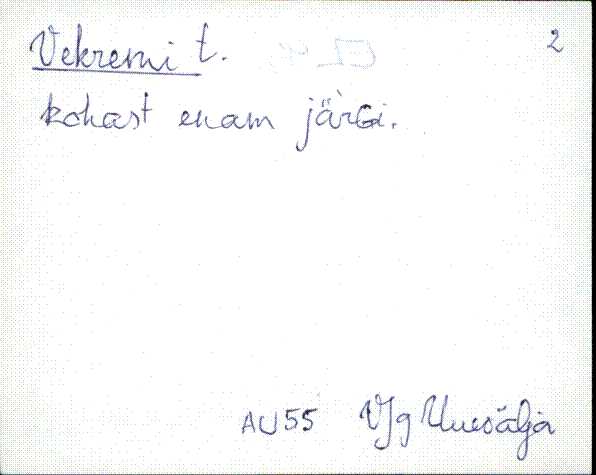 Vekremi t. 2
kohast enam järäi.
AU55 VJg Uuesälja